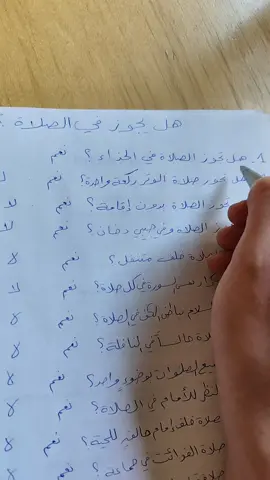 هل يجوز في الصلاة ؟
1. هل تجوز الصلاة في الحذاء ؟ نعم
هل يجوز صلاة الوتر ركعة واحدة؟ نعم لا
الصلاة بدون إقامة؟ نعم لا
الصلاة وفي جيبي دخان؟ نعم لا
صلاة خلف متنفل؟ نعم لا
تكرار نفس السورة في كل صلاة؟ نعم لا
في الصلاة؟ نعم لا
صلاة جالسا في النافلة؟ نعم لا
الصلوات بوضوء واحد؟ نعم لا
النظر للأمام في الصلاة؟ نعم لا
صلاة خلف إمام حالق للحية؟ نعم لا
صلاة الفوائت في جماعة؟ نعم
صلاة